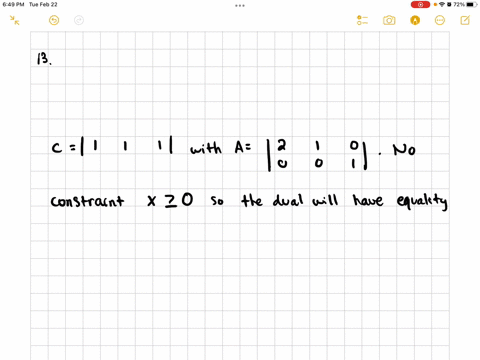 6:49 PM Tue Feb 22
72%
13.
c = | 1 1 1 | with A = | 2 1 0 | . No
| 0 0 1 |
constraint x ≥ 0 so the dual will have equality